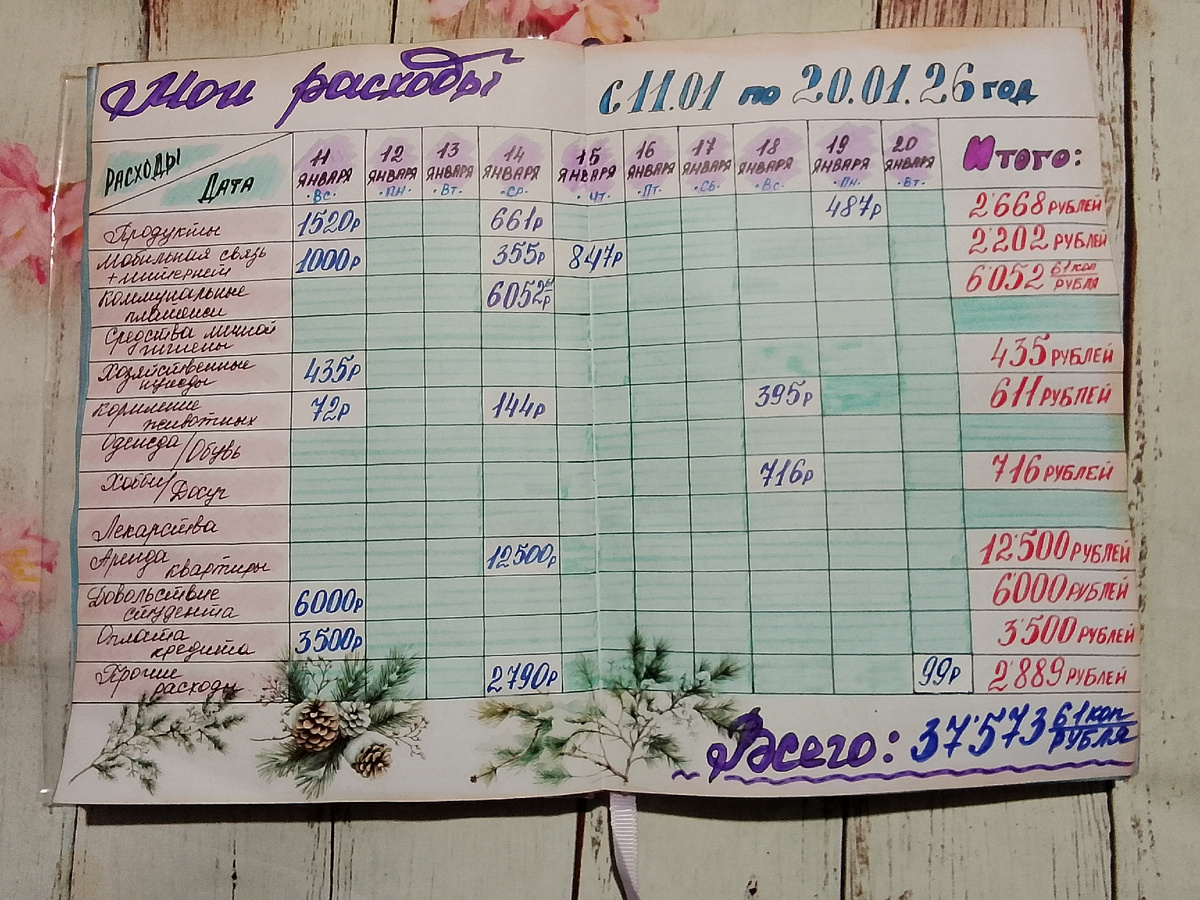 Мои расходы с 11.01 по 20.01.26 год
РАСХОДЫ
ДАТА
11 ЯНВАРЯ ·Вс·
12 ЯНВАРЯ ·ПН·
13 ЯНВАРЯ ·Вт·
14 ЯНВАРЯ ·Ср·
15 ЯНВАРЯ ·Чт·
16 ЯНВАРЯ ·Пт·
17 ЯНВАРЯ ·Сб·
18 ЯНВАРЯ ·Вс·
19 ЯНВАРЯ ·ПН·
20 ЯНВАРЯ ·Вт·
Итого:
Продукты 1520р 661р 487р 2'668 РУБЛЕЙ
Мобильная связь
+интернет 1000р 355р 847р 2'202 РУБЛЕЙ
Коммунальные
платежи 6052 61 р 6'052 61 коп РУБЛЯ
Средства личной
гигиены
Хозяйственные
нужды 435р 435 РУБЛЕЙ
Кормление
животных 72р 144р 395р 611 РУБЛЕЙ
Одежда/Обувь
Хобби/Досуг 716р 716 РУБЛЕЙ
Лекарства
Аренда
квартиры 12500р 12'500 РУБЛЕЙ
Довольствие
студента 6000р 6'000 РУБЛЕЙ
Оплата
кредита 3500р 3'500 РУБЛЕЙ
Прочие
расходы 2790р 99р 2'889 РУБЛЕЙ
Всего: 37'573 61 коп РУБЛЯ